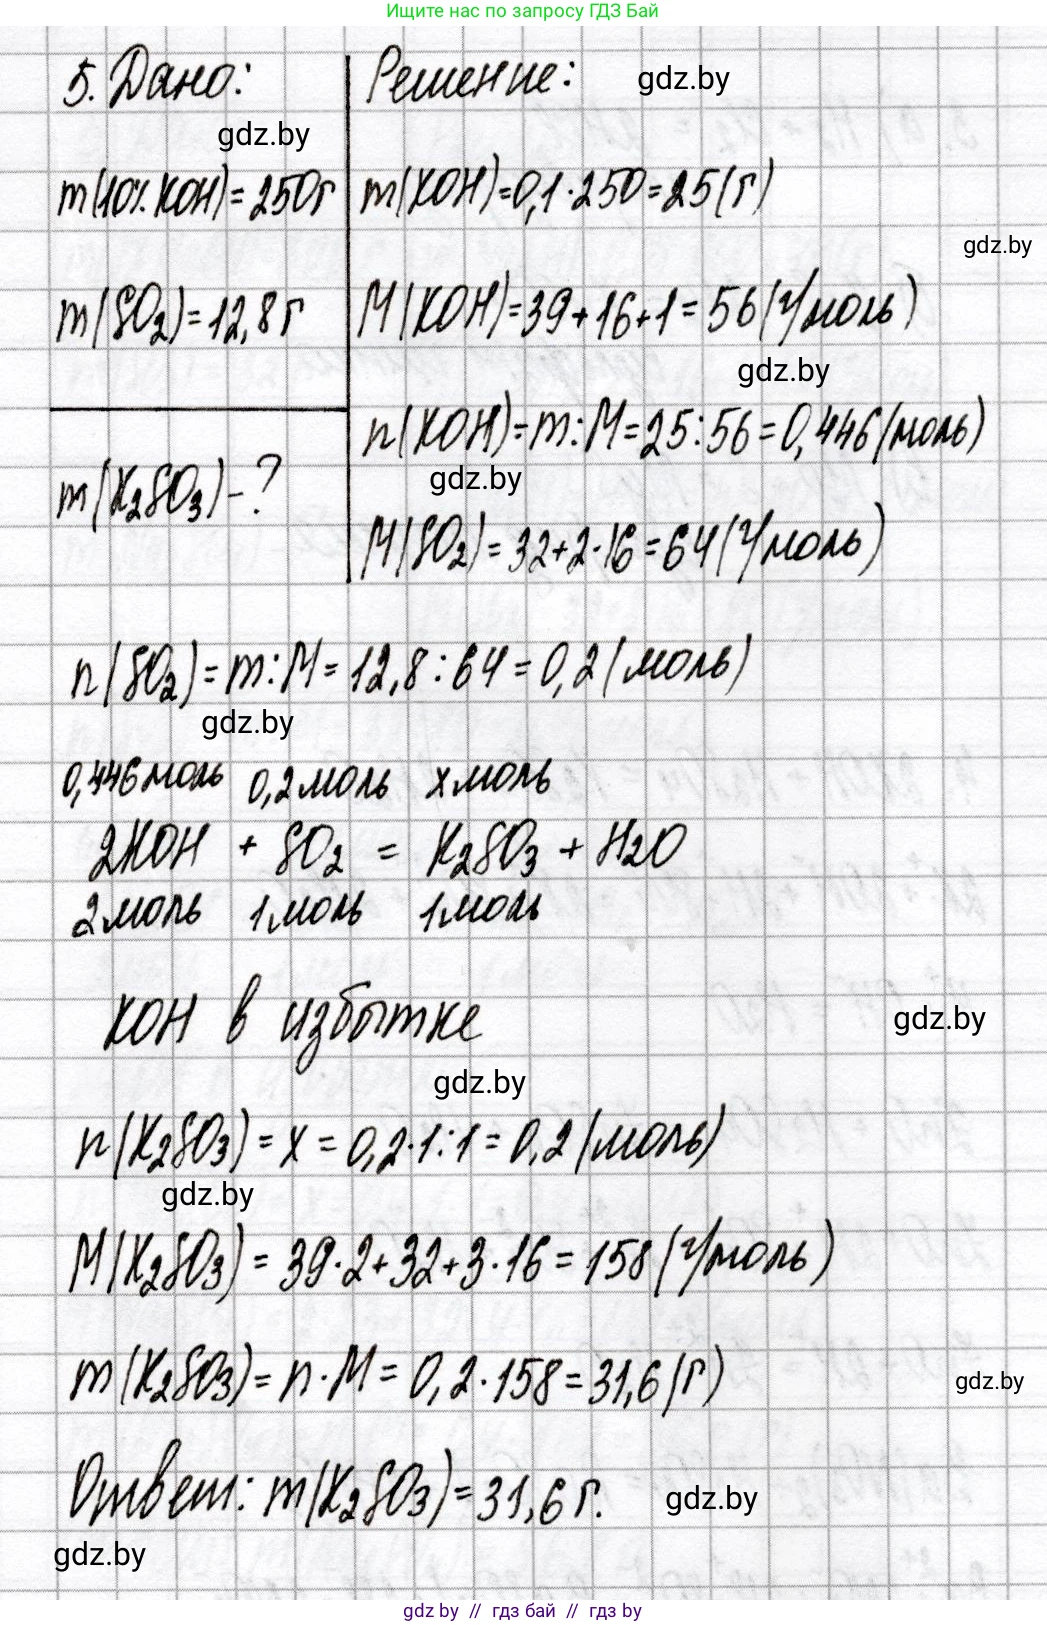 Ищите нас по запросу ГДЗ Бай
5. Дано:
Решение:
gdz.by
gdz.by
m(10% KOH)=250г
m(KOH)=0,1·250=25(г)
gdz.by
m(SO₂)=12,8г
M(KOH)=39+16+1=56(г/моль)
gdz.by
n(KOH)=m:M=25:56=0,446(моль)
m(K₂SO₃)-?
gdz.by
M(SO₂)=32+2·16=64(г/моль)
n(SO₂)=m:M=12,8:64=0,2(моль)
gdz.by
0,446моль 0,2моль xмоль
2KOH + SO₂ = K₂SO₃ + H₂O
2моль 1моль 1моль
KOH в избытке
gdz.by
gdz.by
n(K₂SO₃)=x=0,2·1:1=0,2(моль)
gdz.by
M(K₂SO₃)=39·2+32+3·16=158(г/моль)
m(K₂SO₃)=n·M=0,2·158=31,6(г)
gdz.by
Ответ: m(K₂SO₃)=31,6г.
gdz.by
gdz.by
gdz by // гдз бай // гдз by